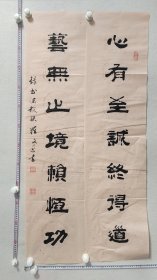 心有至誠終得道
藝無止境賴恆功